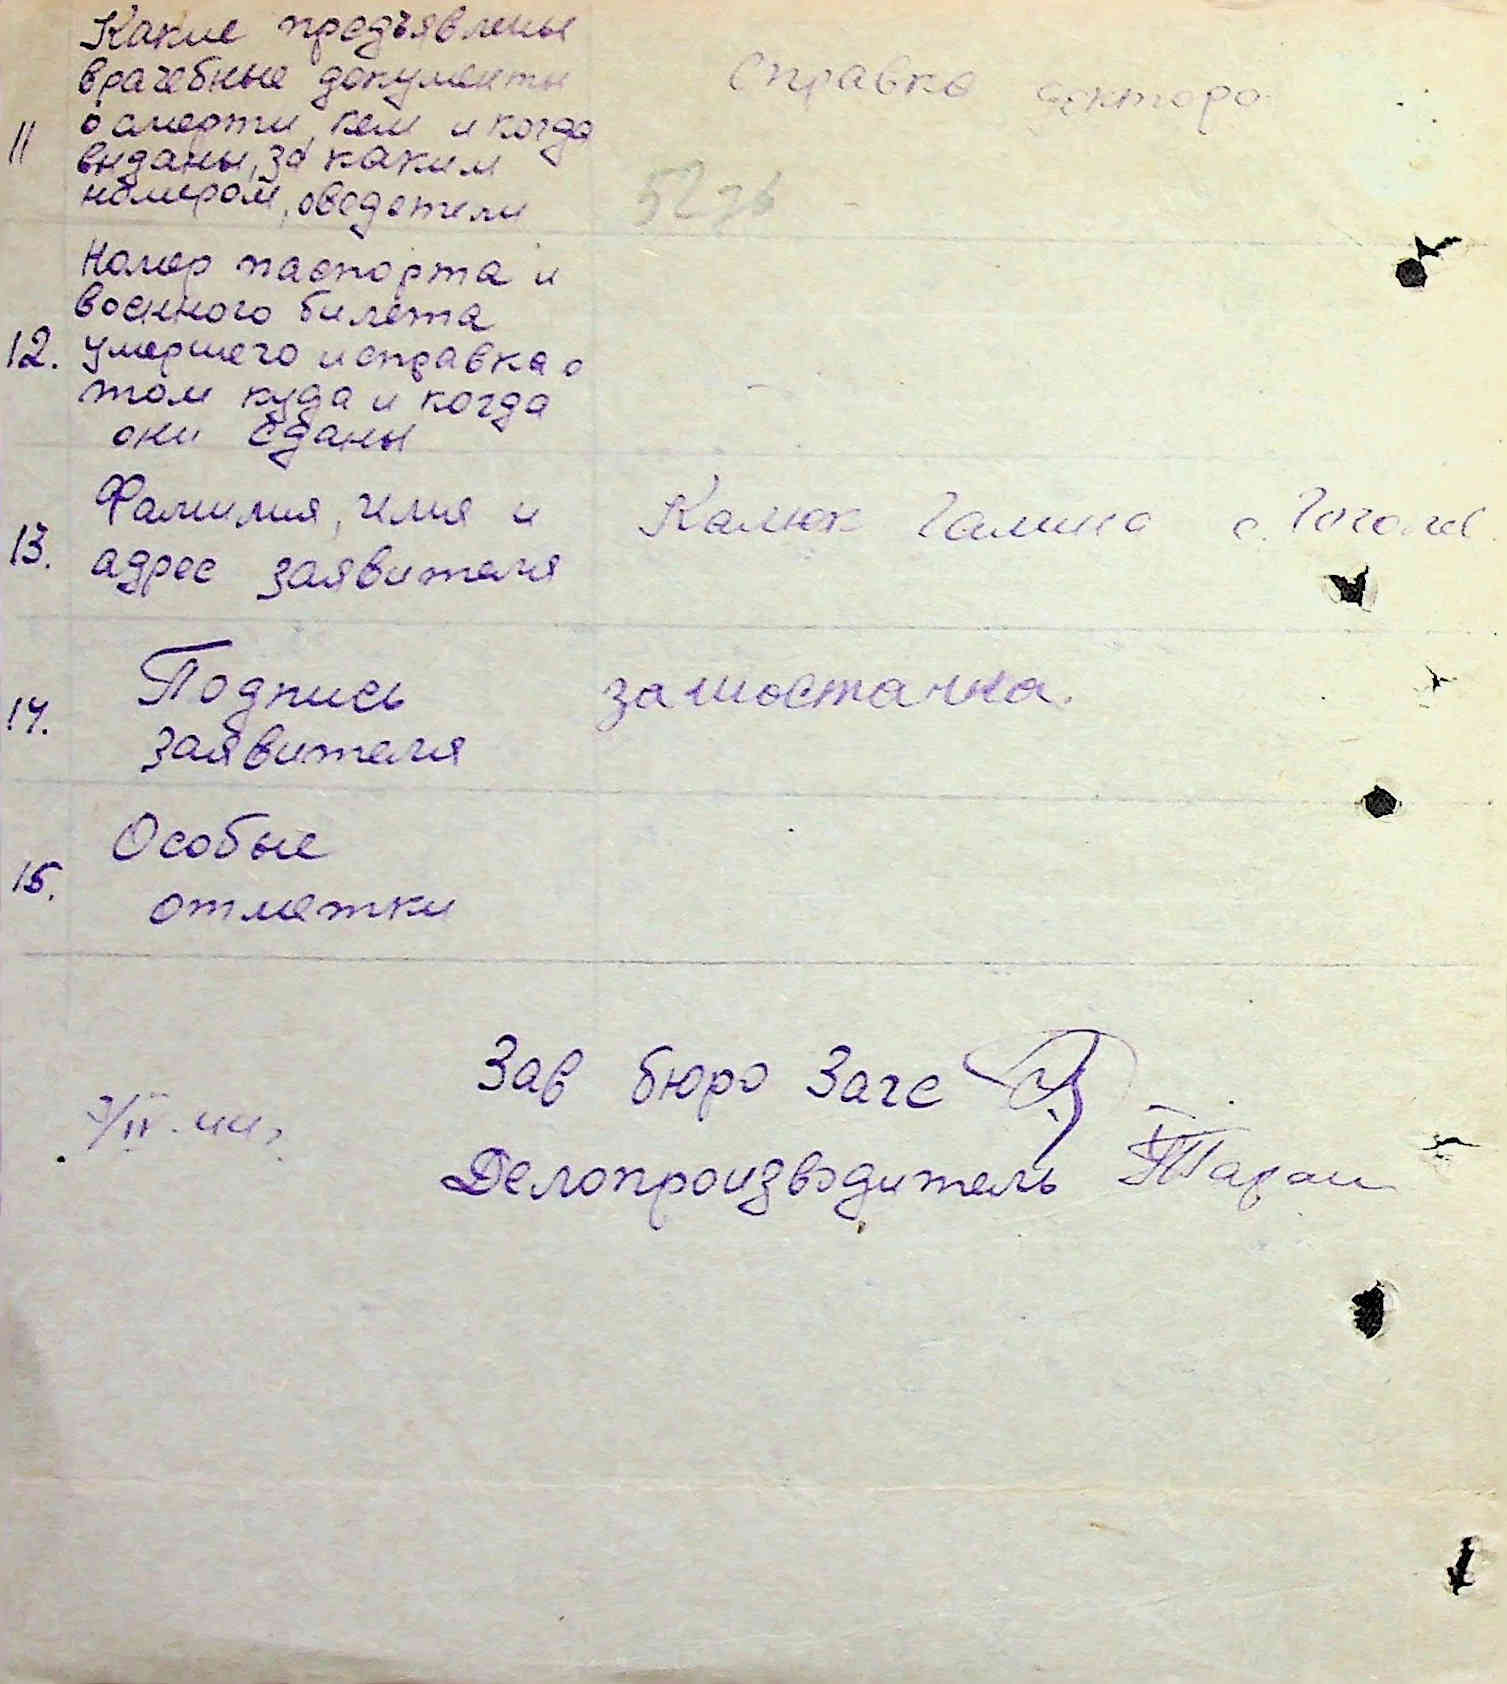 Какие предъявлены
врачебные документы
Справка доктора
11 о смерти, кем и когда
выданы, за каким
номером, сведетели
Номер паспорта и
военного билета
12. умершего и справка о
том куда и когда
они сданы
Фамилия, имя и
Калюк Галина с. Гоголев
13. адрес заявителя
14. Подпись
заявителя
Особые
15. отметки
Зав бюро Загс
7/IV
Делопроизводитель Таран